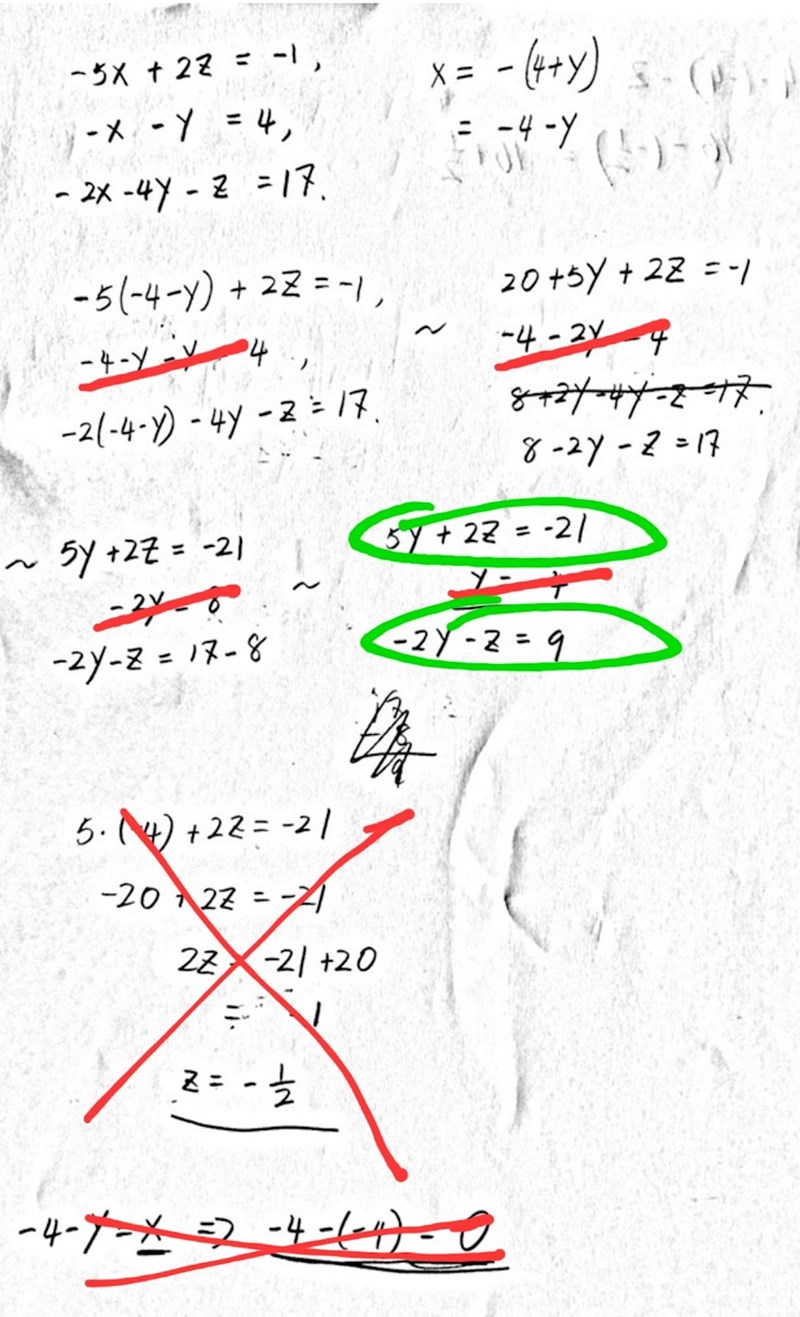 -5x + 2z = -1,
-x - y = 4,
-2x - 4y - z = 17.
x = -(4+y)
= -4-y
-5(-4-y) + 2z = -1,
-4-y-y = 4,
-2(-4-y) - 4y - z = 17.
~
20+5y+2z = -1
-4-2y = 4
8+2y-4y-z = 17.
8-2y-z = 17
~ 5y+2z = -21
-2y = 8
-2y-z = 17-8
~
5y+2z = -21
y = -4
-2y-z = 9
5·(-4)+2z = -21
-20+2z = -21
2z = -21+20
= -1
z = -1/2
-4-y = x => -4-(-4) = 0